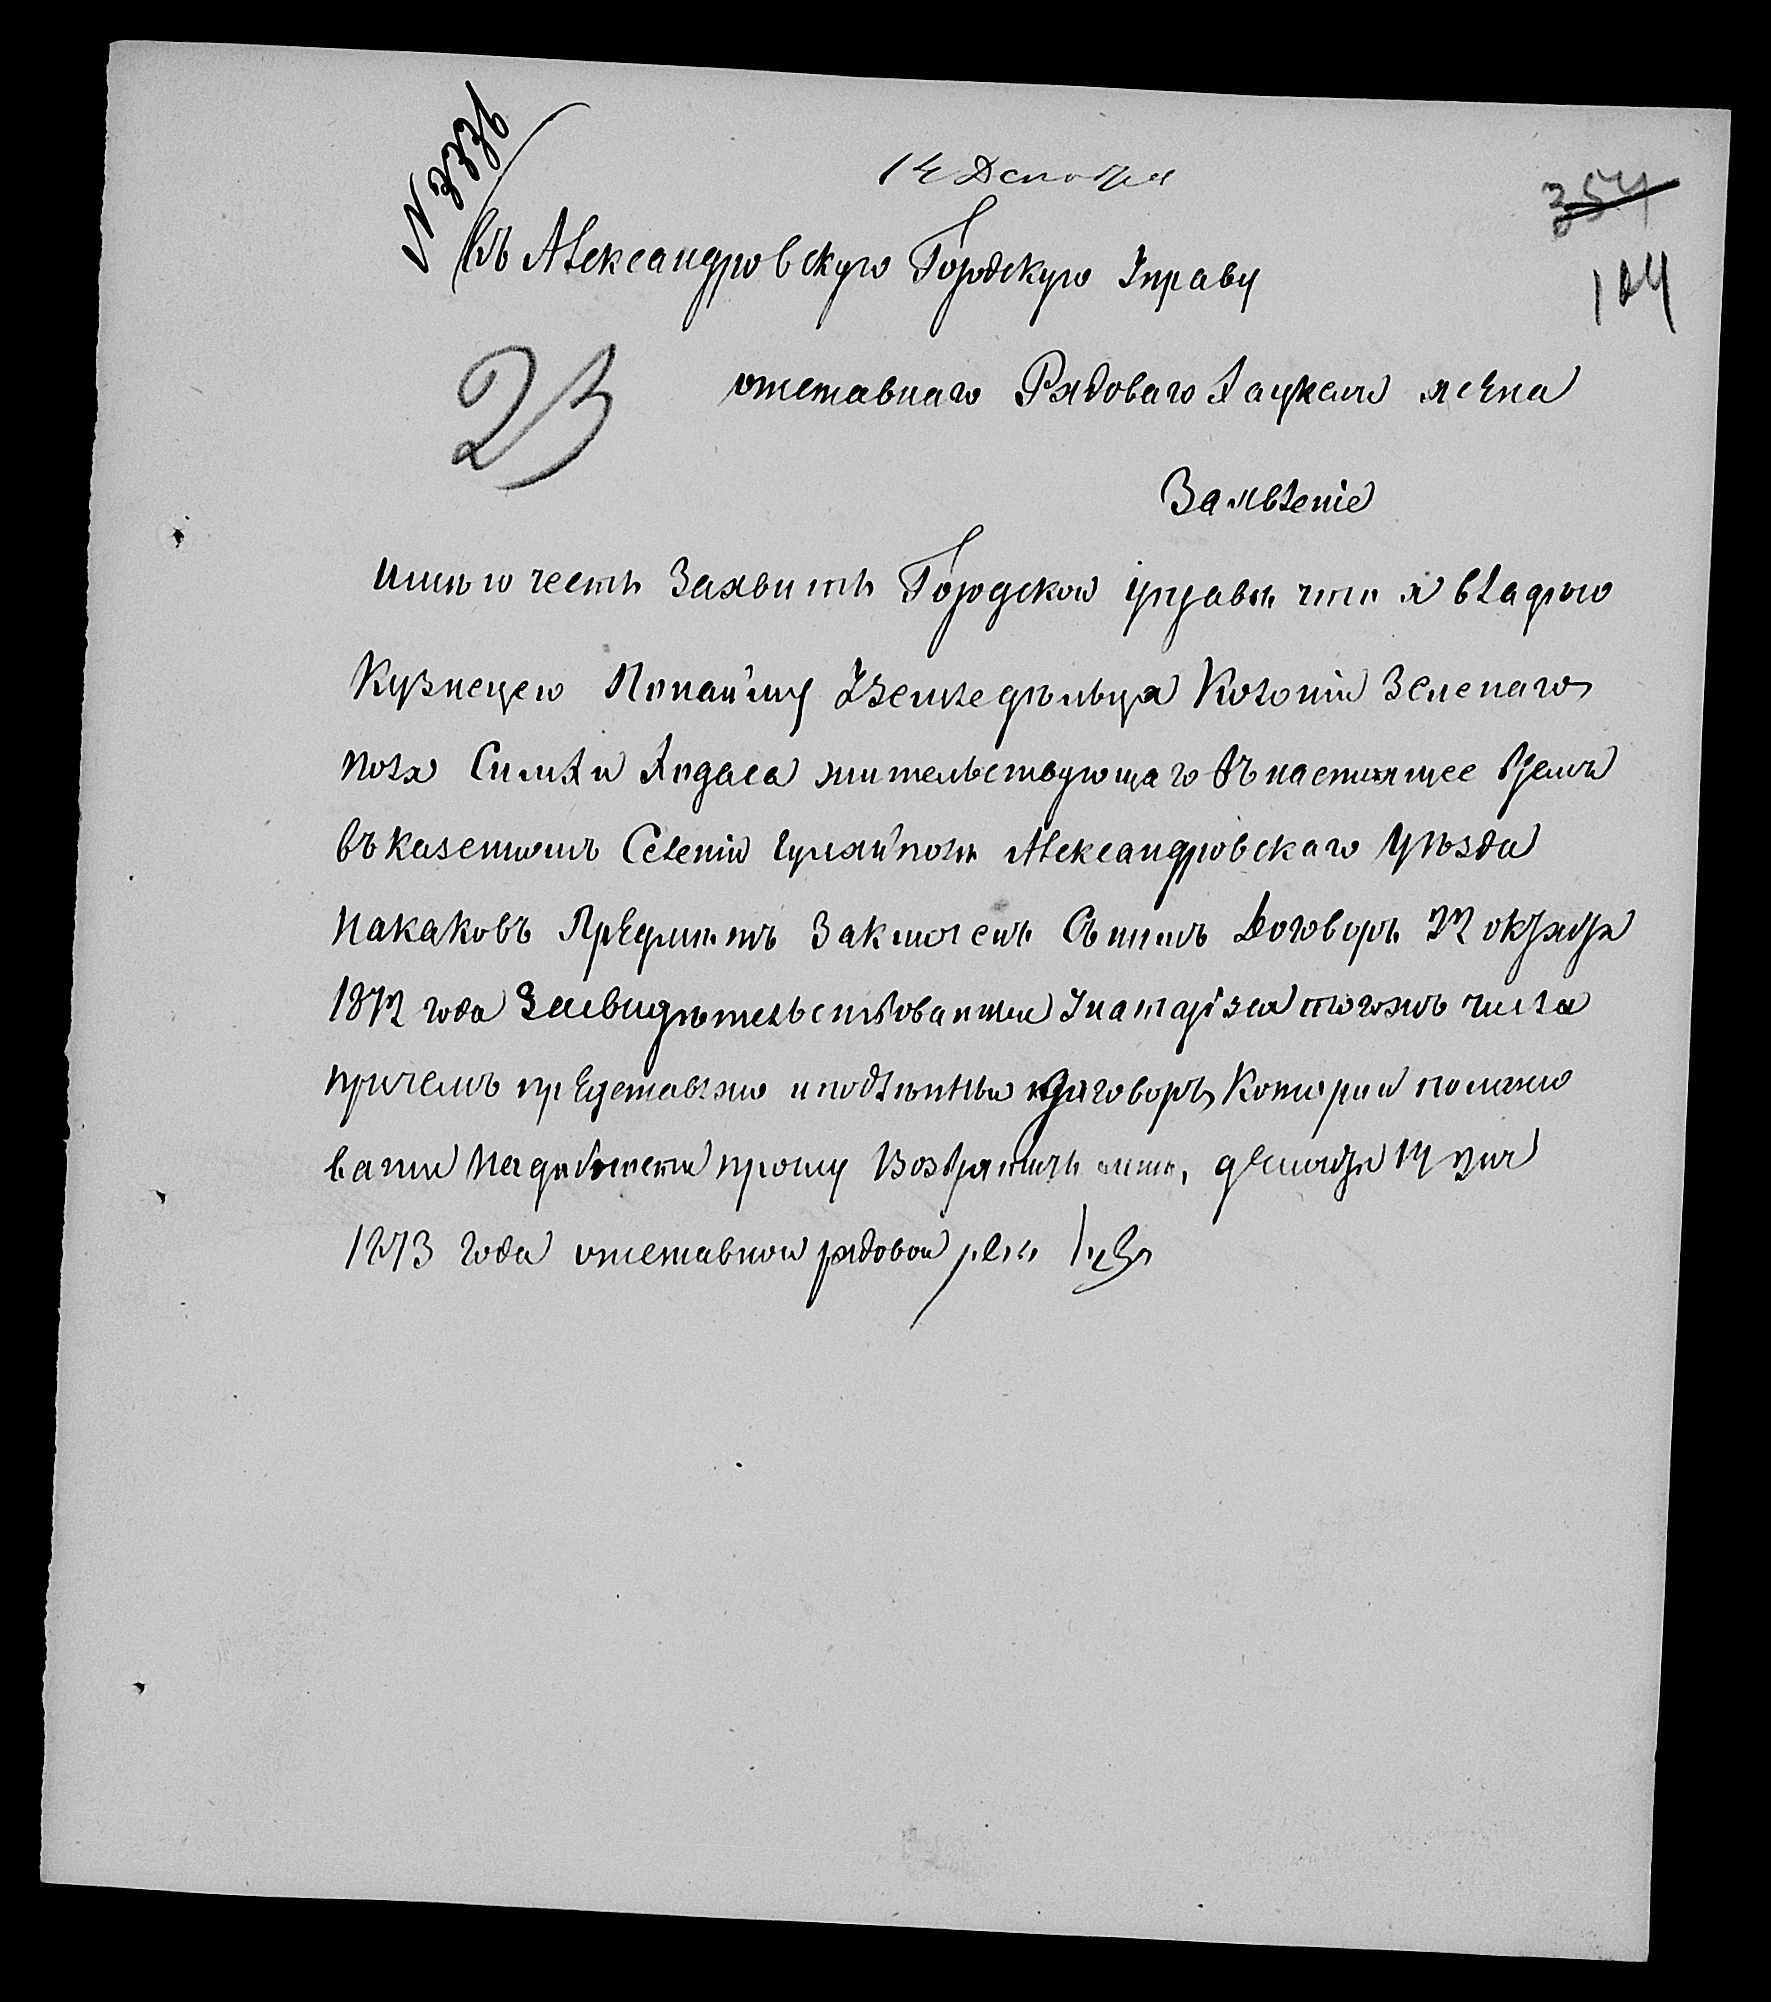 № 3336
14 Декабря
354
въ Александровскую Городскую Управу
124
23
отставнаго Рядоваго Хацкеля
Заявленіе
имѣю честь Заявить Городской управѣ что я владѣю
Кузнецею Понайму Уземледѣльца Колоніи Зеленаго
поля Симхи жительствующаго въ настоящее время
въ казенномъ Селеніи Гуляйполѣ Александровскаго Уѣзда
Накаковъ Предметъ Заключенъ Съ нимъ Договоръ 22 октября
1872 года Засвидѣтельствованный Унатаріза тогожъ числа
причемъ представляю иподлѣнный договоръ, Который помино
вании Надобности прошу Возвратить мнѣ, декабря 14 дня
1873 года отставной рядовой